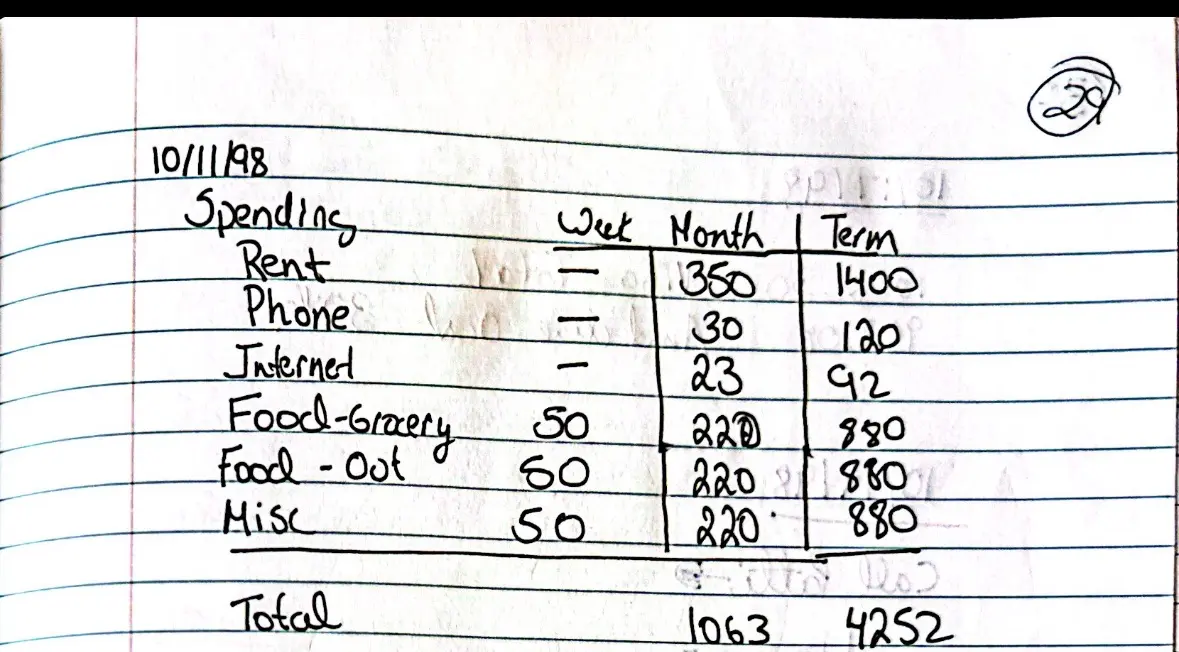 29
10/11/98
Spending Week Month Term
Rent — 350 1400
Phone — 30 120
Internet — 23 92
Food-Grocery 50 220 880
Food - Out 50 220 880
Misc 50 220 880
Total 1063 4252